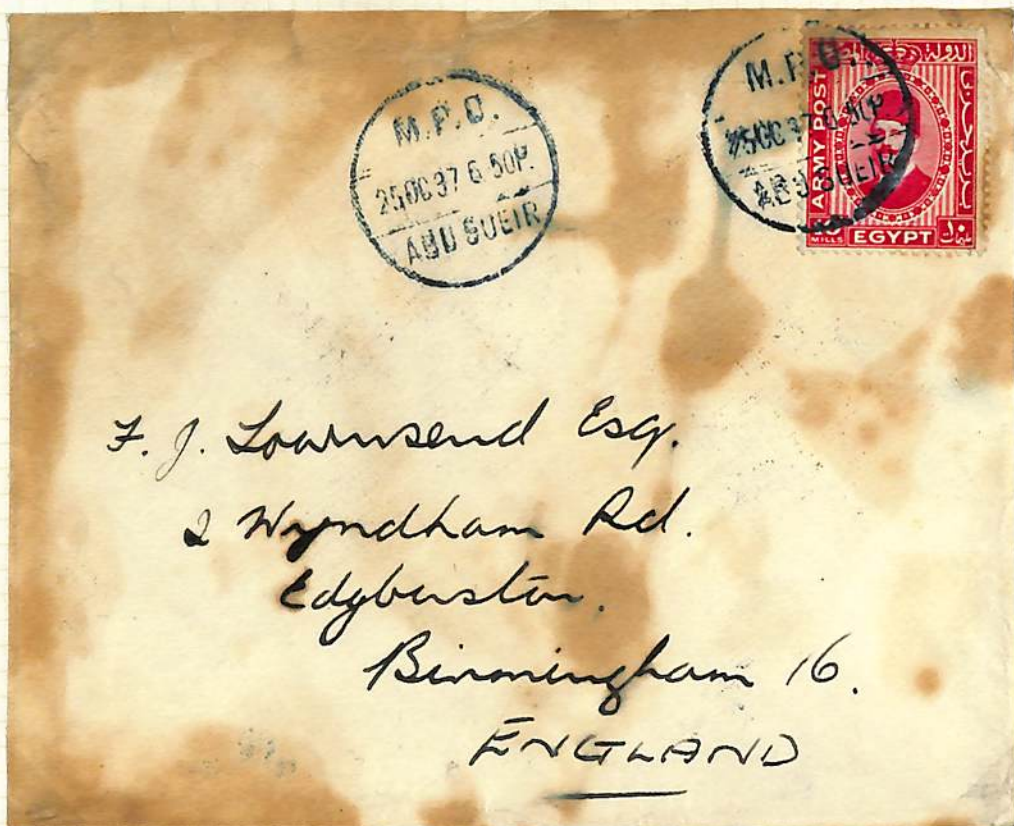 M.P.O.
25OC37 6 50P.
ABU SUEIR
M.P.O.
25OC37 6 50P.
ABU SUEIR
ARMY POST
10
MILLS
EGYPT
١٠
مليمات
F. J. Townsend Esq.
2 Wyndham Rd.
Edgbaston.
Birmingham 16.
ENGLAND